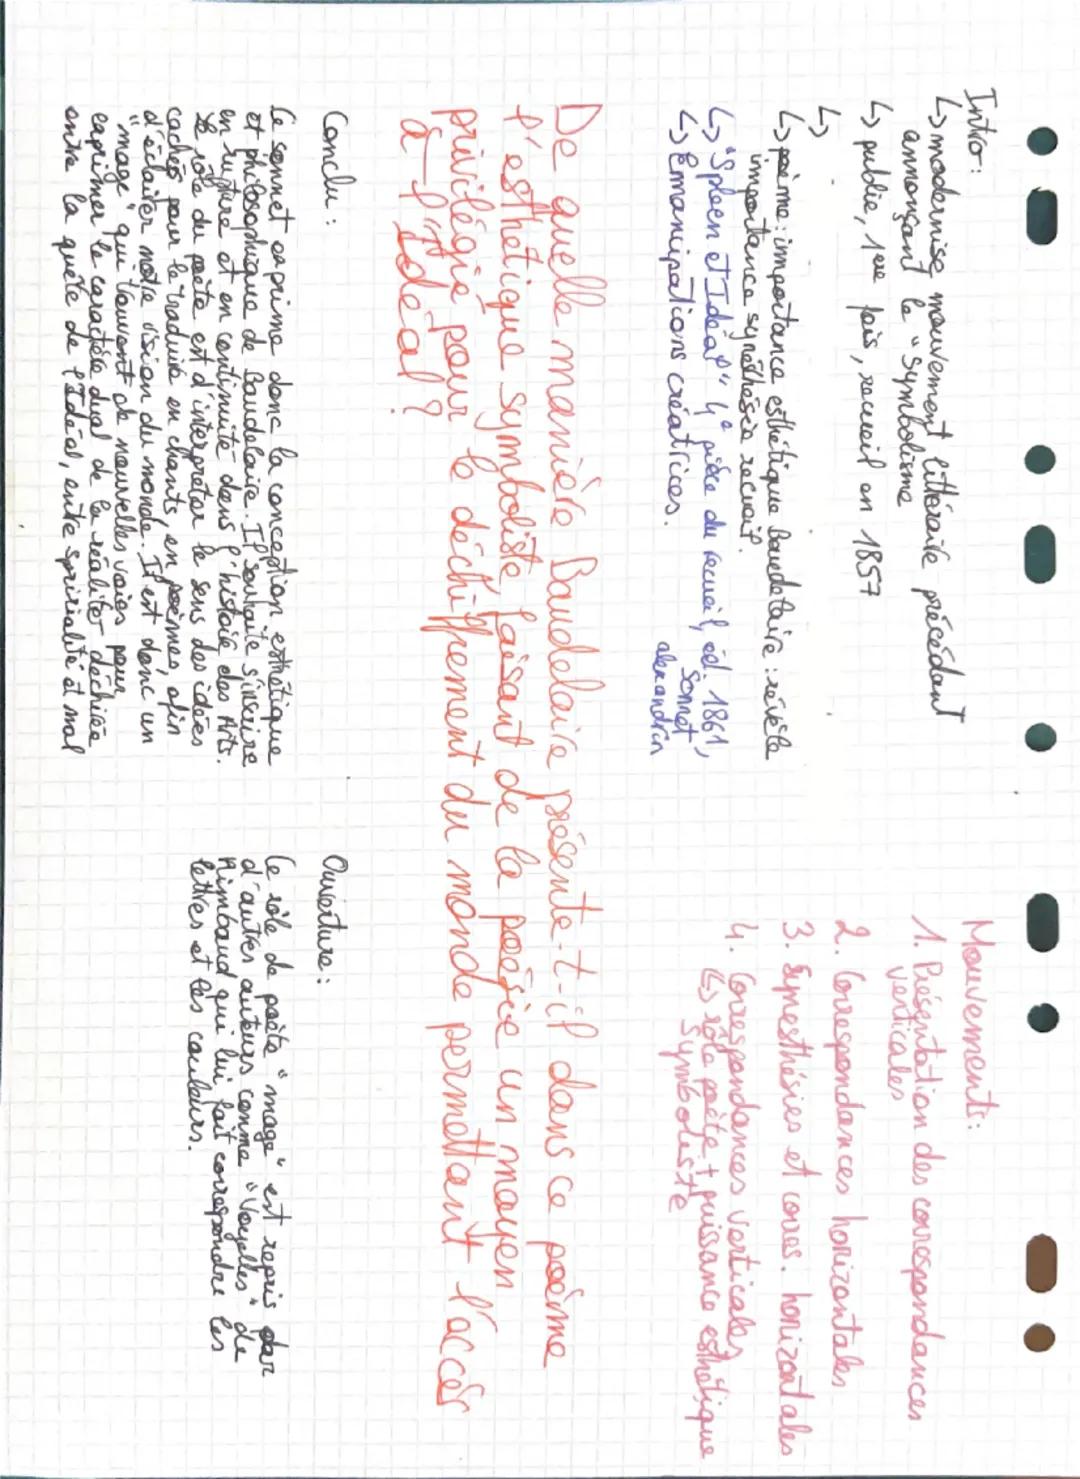 Intro:
↳ modernise mouvement littéraire précédant
annonçant le "Symbolisme
↳ publié, 1ère fois, recueil en 1857
↳
↳ poème: importance esthétique Baudelaire: révèle
importance synéthésie recueil.
↳ "Spleen et Idéal" 4e pièce du recueil, éd. 1861,
sonnet
alexandrin
↳ Émancipations créatrices.
Mouvements:
1. Présentation des correspondances
verticales
2. Correspondances horizontales
3. Synesthésies et corres. horizontales
4. Correspondances verticales
↳ rôle poète + puissance esthétique
symboliste
De quelle manière Baudelaire présente-t-il dans ce poème
l'esthétique symboliste, faisant de la poésie un moyen
privilégié pour le déchiffrement du monde permettant l'accès
à l'Idéal?
Conclu:
Ce sonnet exprime donc la conception esthétique
et philosophique de Baudelaire. Il souhaite s'inscrire
en rupture et en continuité dans l'histoire des Arts.
le rôle du poète est d'interpréter le sens des idées
cachés pour le traduire en chants, en poèmes, afin
d'éclairer notre vision du monde. Il est donc un
"mage" qui trouvent de nouvelles voies pour
exprimer le caractère dual de la réalité, déchirée
entre la quête de l'Idéal, entre spirialité et mal
Ouverture:
Le rôle de poète "mage" est repris par
d'autres auteurs comme "Voyelles" de
Rimbaud qui lui fait correspondre les
lettres et les couleurs.